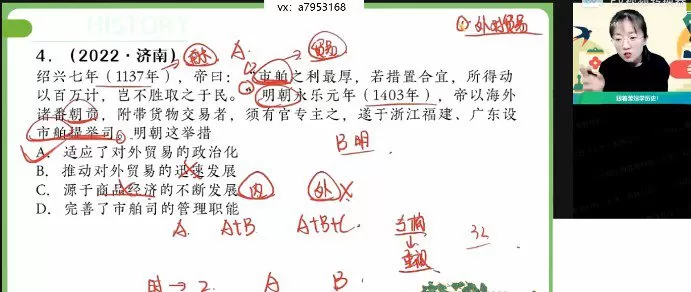 vx: a7953168
HISTORY
① 外对贸易
4. (2022·济南) 南宋 A. 贸易
绍兴七年（1137年），帝曰：“市舶之利最厚，若措置合宜，所得动
以百万计，岂不胜取之于民。”明朝永乐元年（1403年），帝以海外
诸番朝贡，附带货物交易者，须有官专主之，遂于浙江福建、广东设
市舶提举司。明朝这举措
B 明
A. 适应了对外贸易的政治化
B. 推动对外贸易的迅速发展
C. 源于商品经济的不断发展 内 外
D. 完善了市舶司的管理职能
A. A+B A+B+C
A B
跟着楚怡学历史！